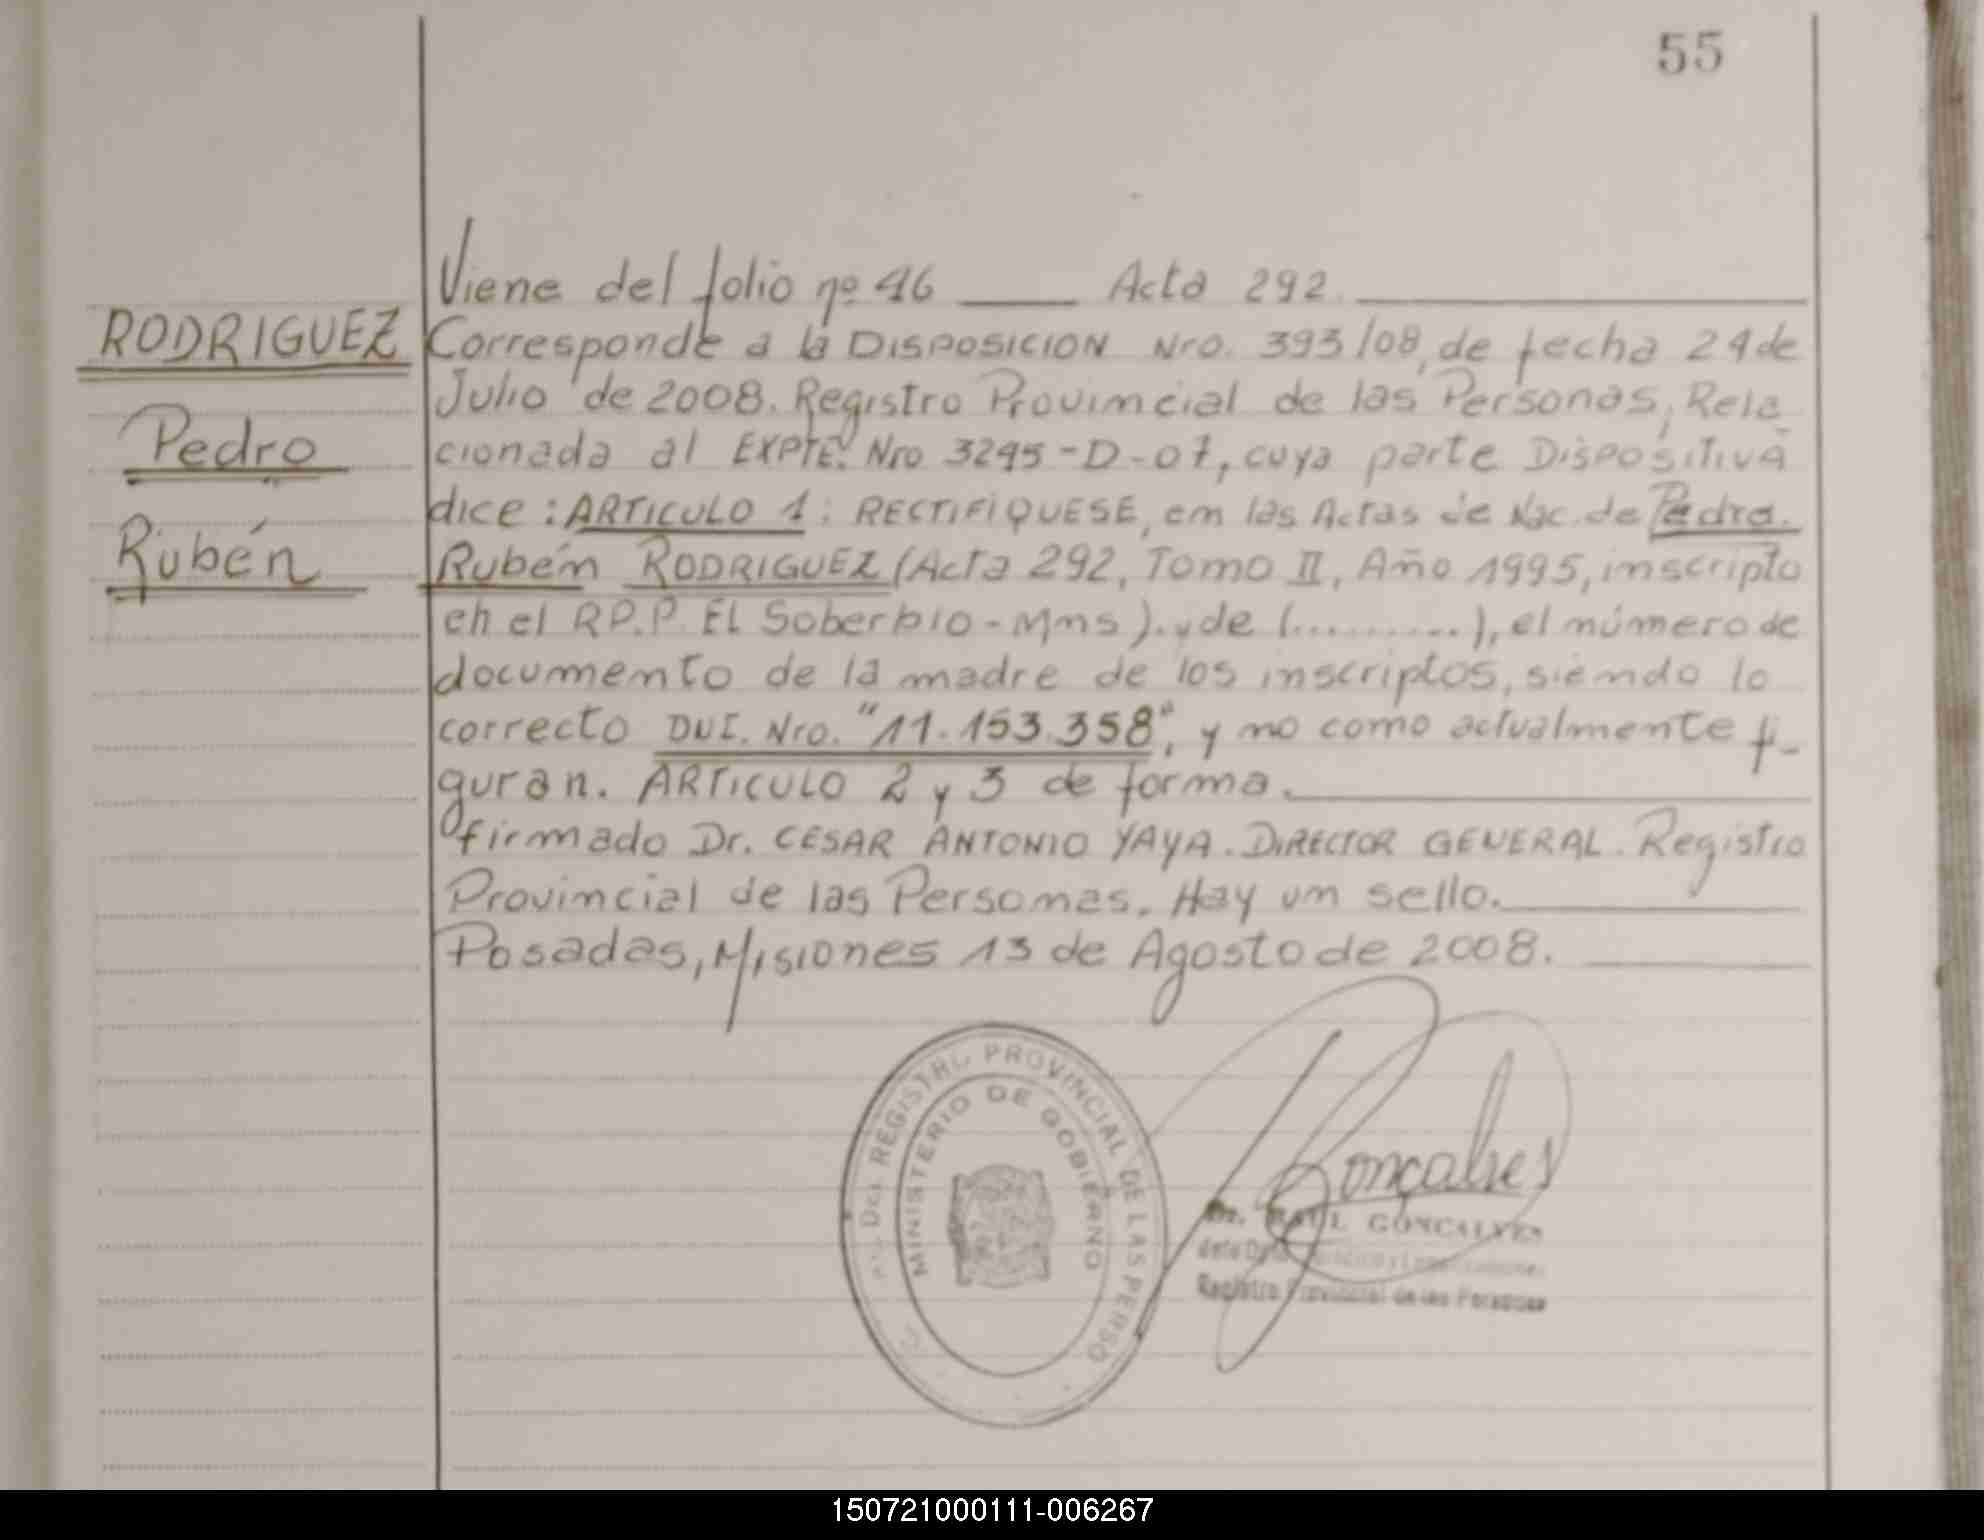 55
Viene del folio nº 46 Acta 292.
RODRIGUEZ
Pedro
Rubén
Corresponde a la DISPOSICION Nro. 393/08, de fecha 24 de
Julio de 2008. Registro Provincial de las Personas, Rela
cionada al EXPTE. Nro 3295-D-07, cuya parte DISPOSITIVA
dice: ARTICULO 1: RECTIFIQUESE, em las Actas de Nac. de Pedro
Rubén RODRIGUEZ (Acta 292, Tomo II, Año 1995, inscripto
en el R.P.P. El Soberbio - Mns). y de (..........), el número de
documento de la madre de los inscriptos, siendo lo
correcto DNI. Nro. "11.153.358", y no como actualmente fi-
guran. ARTICULO 2 y 3 de forma.
firmado Dr. CESAR ANTONIO YAYA. DIRECTOR GENERAL. Registro
Provincial de las Personas. Hay un sello.
Posadas, Misiones 13 de Agosto de 2008.
DEL REGISTRO PROVINCIAL DE LAS PERSO
MINISTERIO DE GOBIERNO
Gonçalves
Dr. RAUL GONCALVES
Registro Provincial de las Personas
150721000111-006267